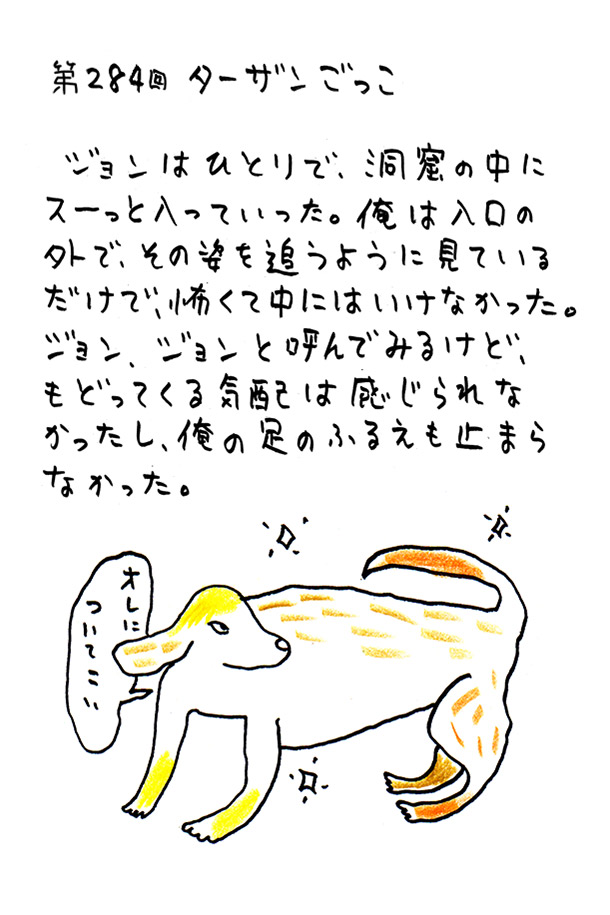 第284回 ターザンごっこ
ジョンはひとりで、洞窟の中に
スーっと入っていった。俺は入口の
外で、その姿を追うように見ている
だけで、怖くて中にはいけなかった。
ジョン、ジョンと呼んでみるけど、
もどってくる気配は感じられな
かったし、俺の足のふるえも止まら
なかった。
オレに
ついてこい